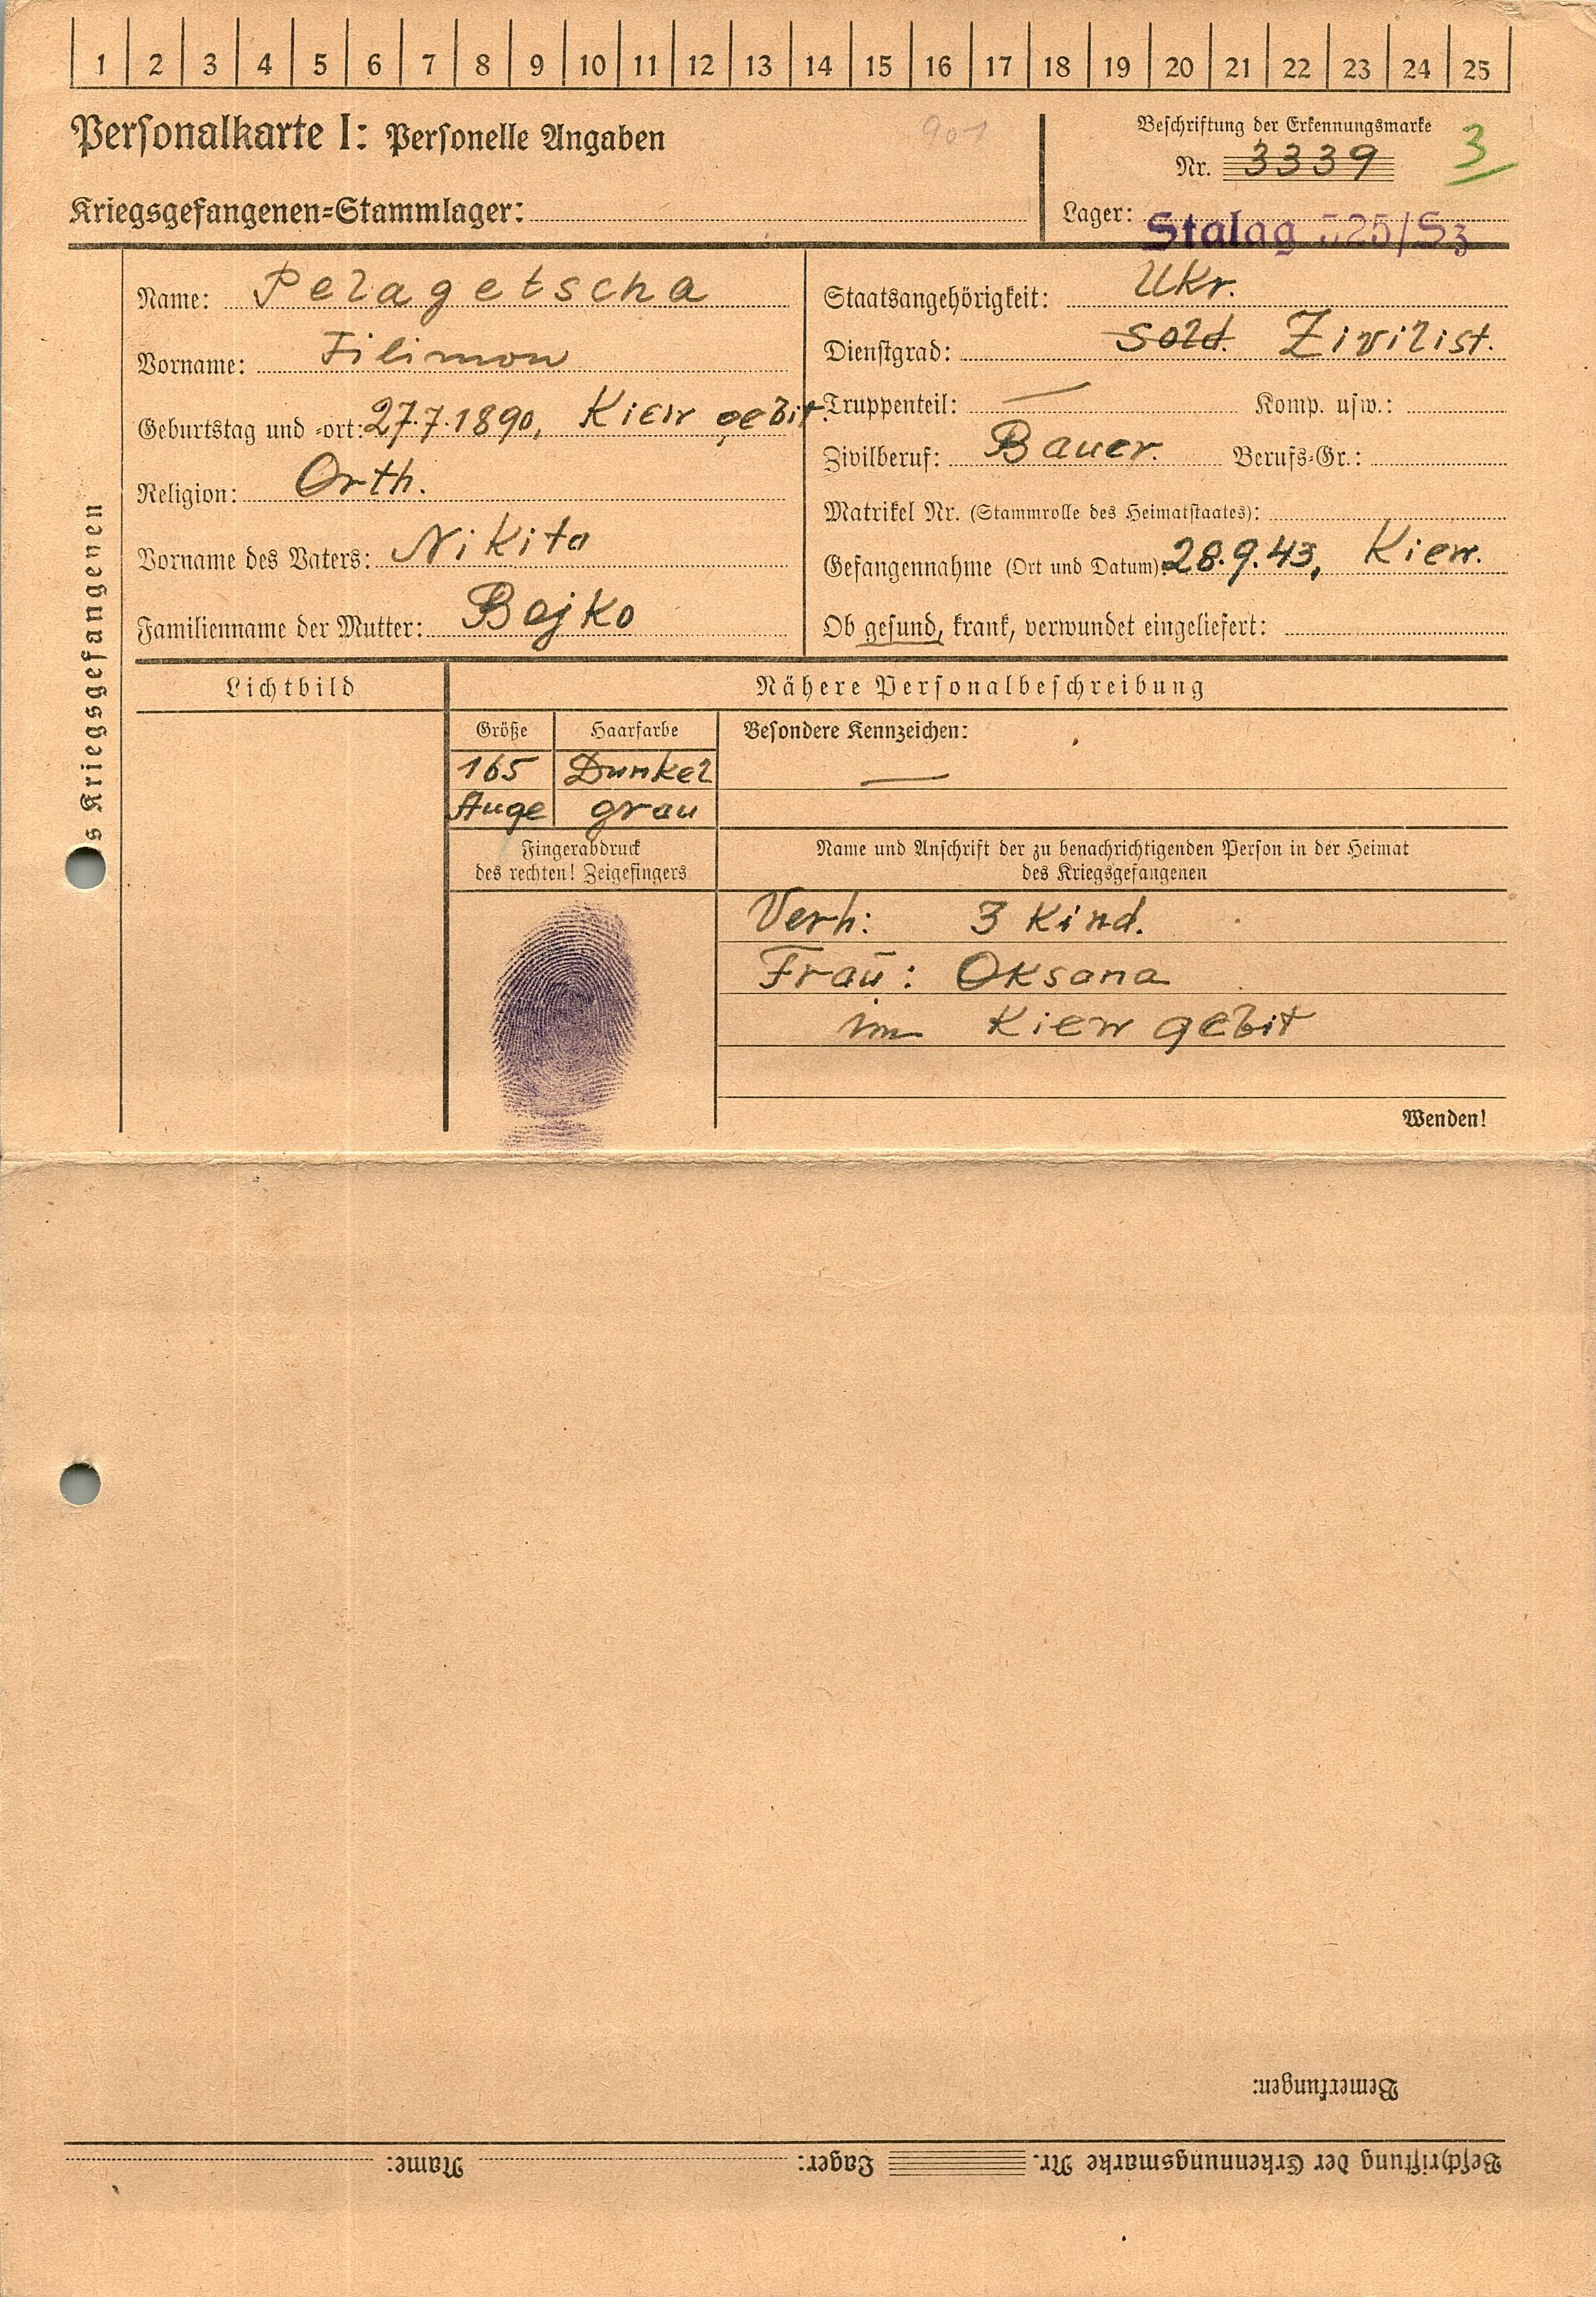 1 2 3 4 5 6 7 8 9 10 11 12 13 14 15 16 17 18 19 20 21 22 23 24 25
Personalkarte I: Personelle Angaben
901
Beschriftung der Erkennungsmarke
Nr. 3339
3
Kriegsgefangenen=Stammlager:
Lager: Stalag 325/Sz
s Kriegsgefangenen
Name: Pelagetscha
Vorname: Filimon
Geburtstag und =ort: 27.7.1890, Kiew gebit.
Religion: Orth.
Vorname des Vaters: Nikita
Familienname der Mutter: Bojko
Staatsangehörigkeit: Ukr.
Dienstgrad: Sold. Zivilist.
Truppenteil: — Komp. usw.:
Zivilberuf: Bauer. Berufs=Gr.:
Matrikel Nr. (Stammrolle des Heimatstaates):
Gefangennahme (Ort und Datum): 28.9.43, Kiew.
Ob gesund, krank, verwundet eingeliefert:
Lichtbild
Nähere Personalbeschreibung
Größe Haarfarbe
165 Dunkel
Auge grau
Besondere Kennzeichen:
—
Fingerabdruck
des rechten! Zeigefingers
Name und Anschrift der zu benachrichtigenden Person in der Heimat
des Kriegsgefangenen
Verh: 3 Kind.
Frau: Oksana
im Kiew gebit
Wenden!
Bemerkungen:
Beschriftung der Erkennungsmarke Nr. Lager: Name: